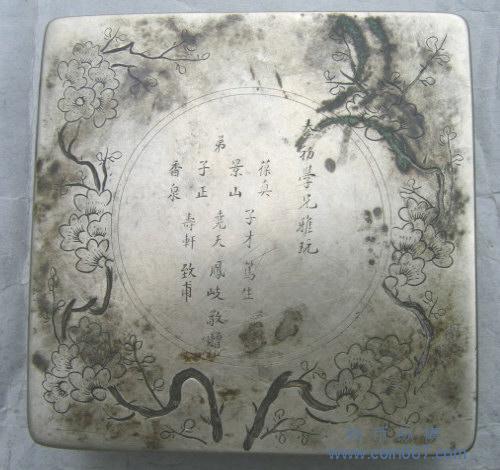 學兄雅玩
葆真
子才 篤生
景山
弟 堯天 鳳岐 敬贈
子正
壽軒 致甫
香泉
www.coin007.com